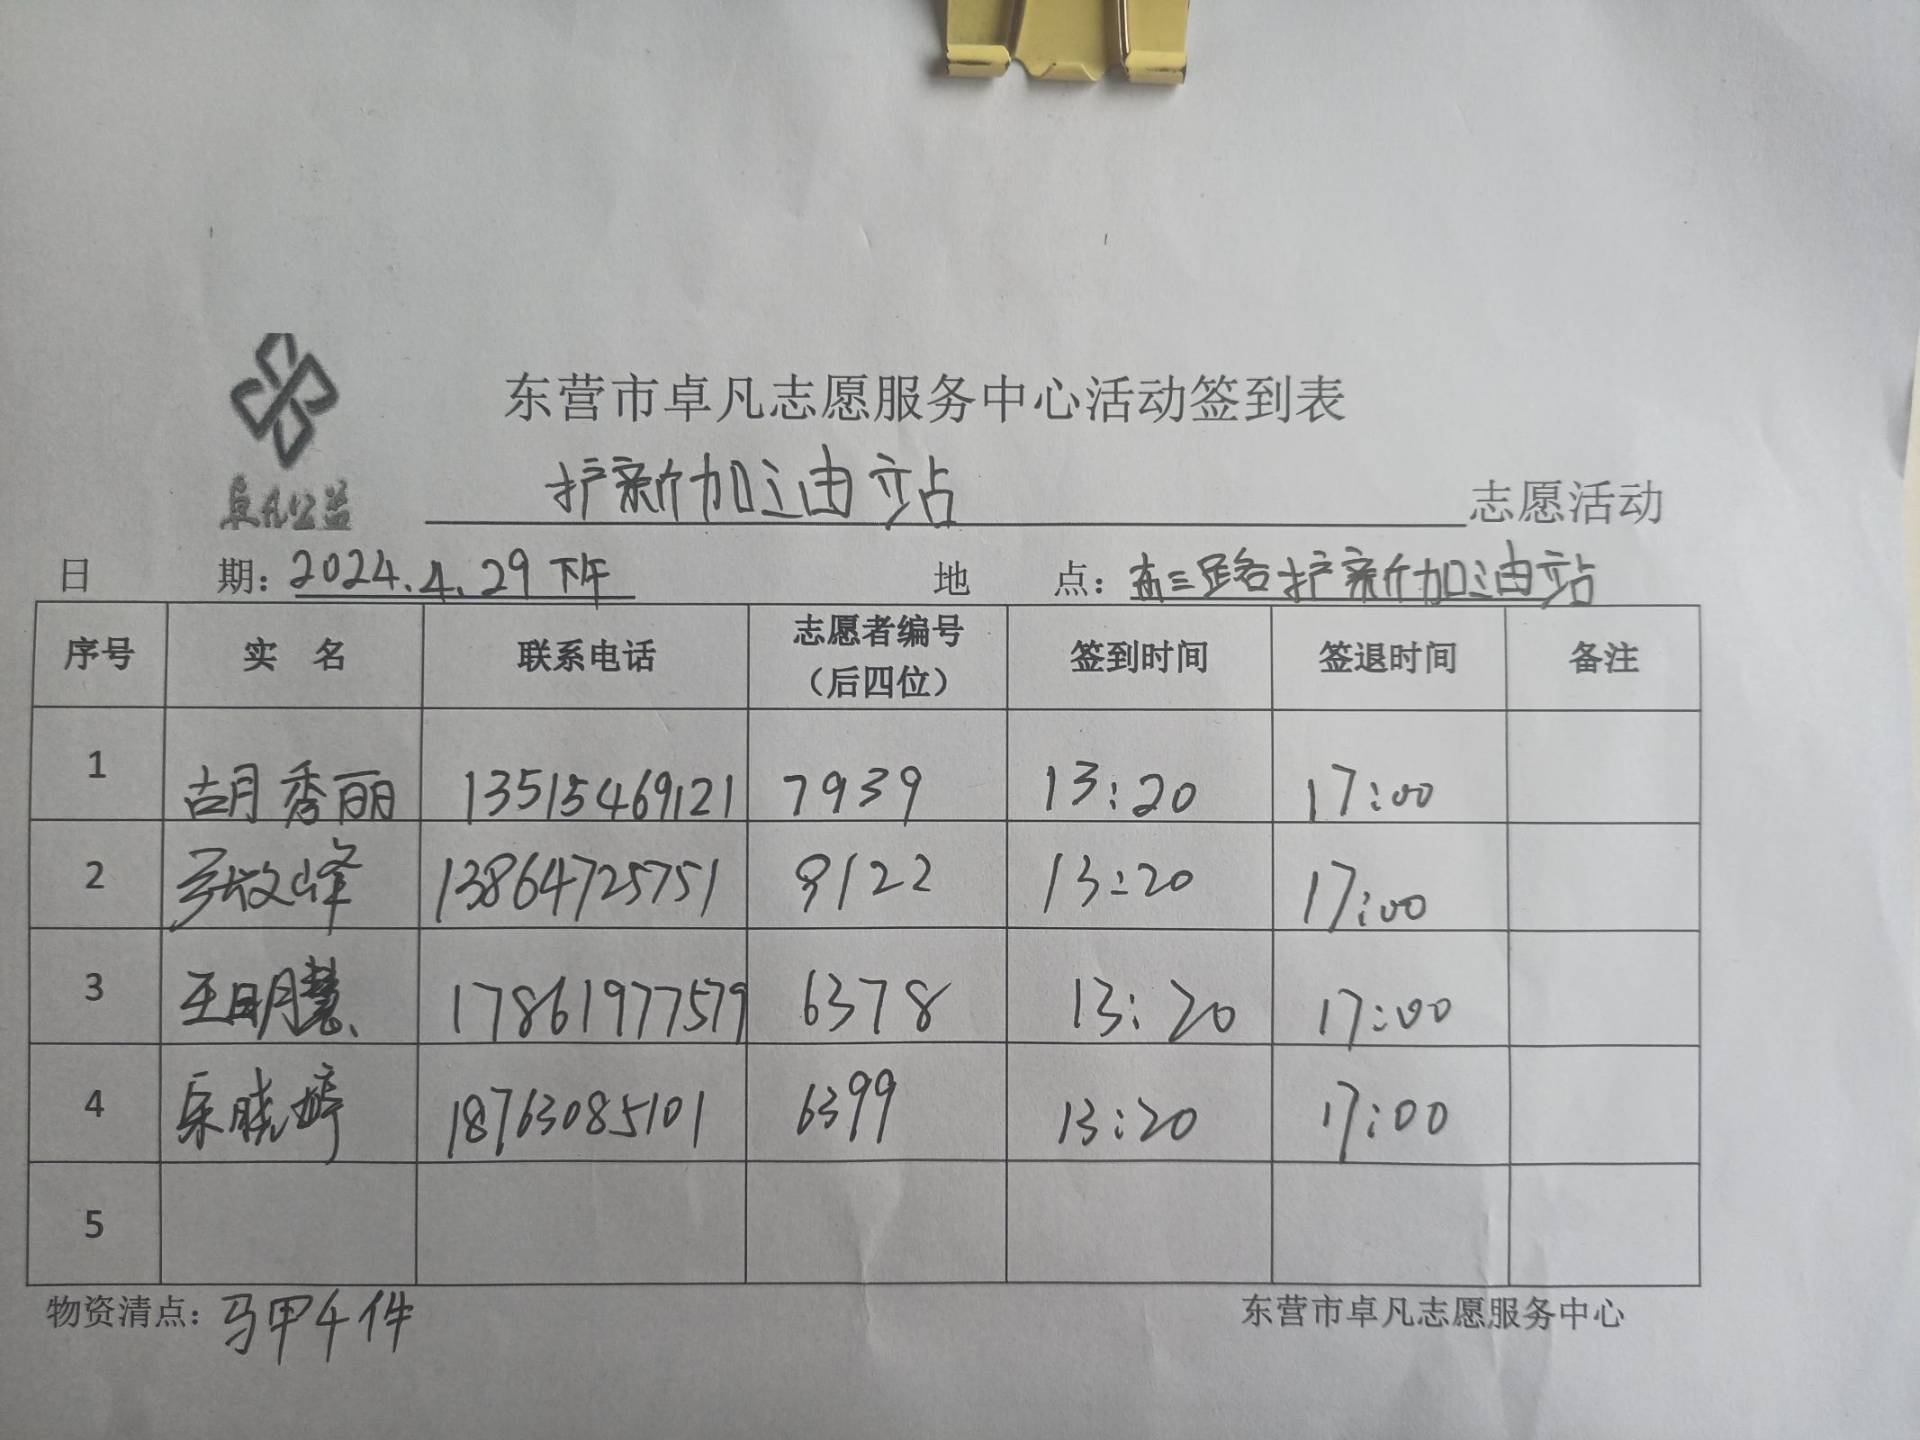 东营市卓凡志愿服务中心活动签到表
卓凡公益
护新加油站 志愿活动
日 期: 2024.4.29 下午 地 点: 东三路护新加油站
序号 实 名 联系电话 志愿者编号（后四位） 签到时间 签退时间 备注
1 胡秀丽 13515469121 7939 13:20 17:00
2 峰 13864725751 9122 13:20 17:00
3 王明慧 17861977579 6378 13:20 17:00
4 晓婷 18763085101 6399 13:20 17:00
5
物资清点: 马甲4件 东营市卓凡志愿服务中心